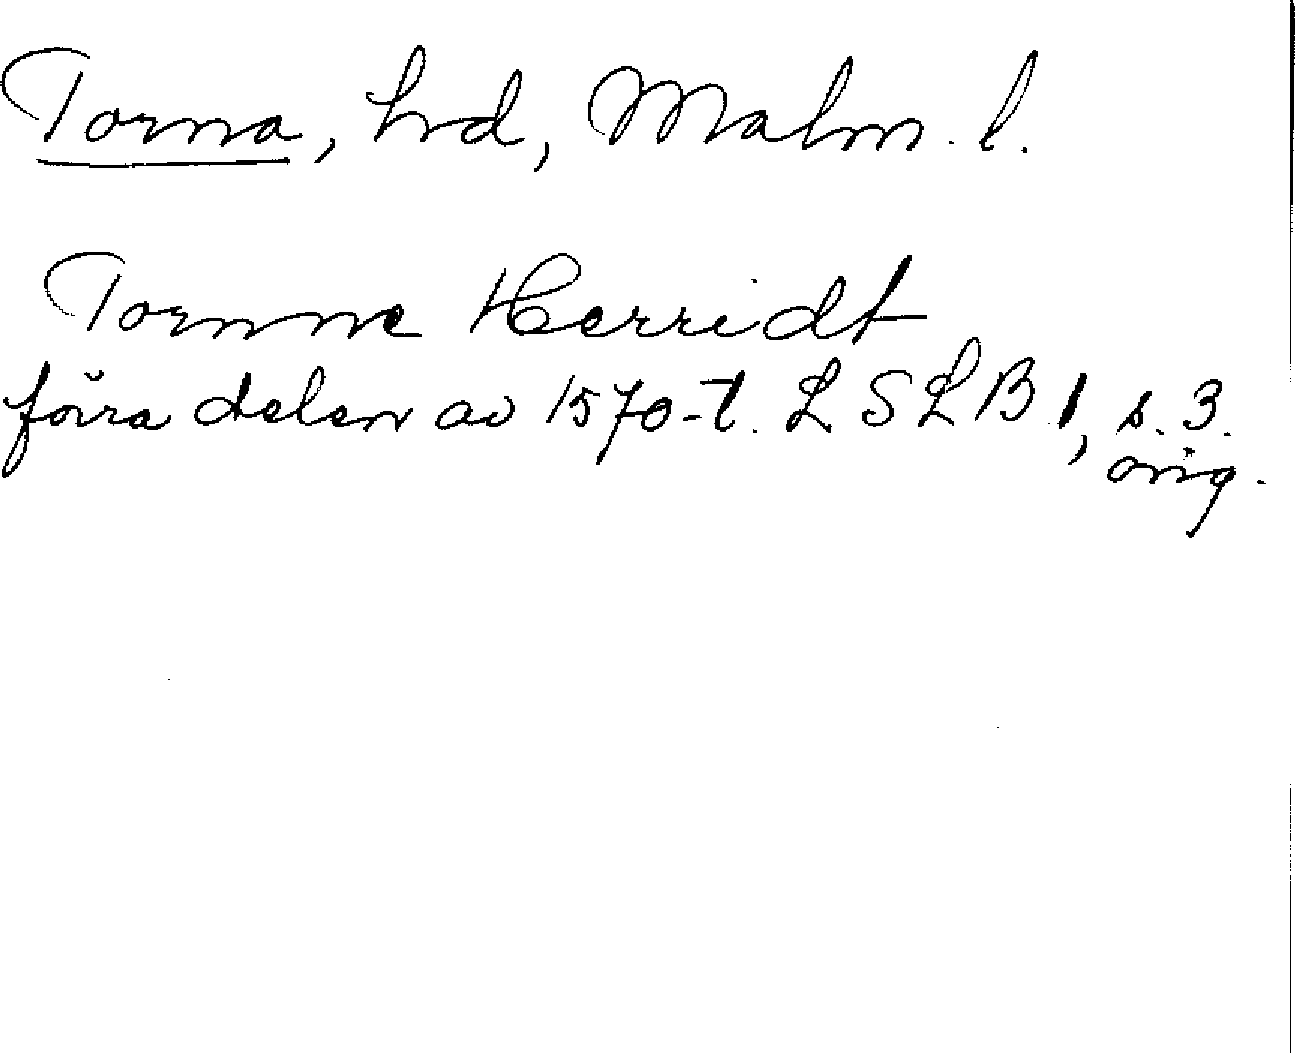 Torna, hrd, Malm. l.
Tornne Herridt
förra delen av 1570-t. LSLB 1, s. 3.
orig.